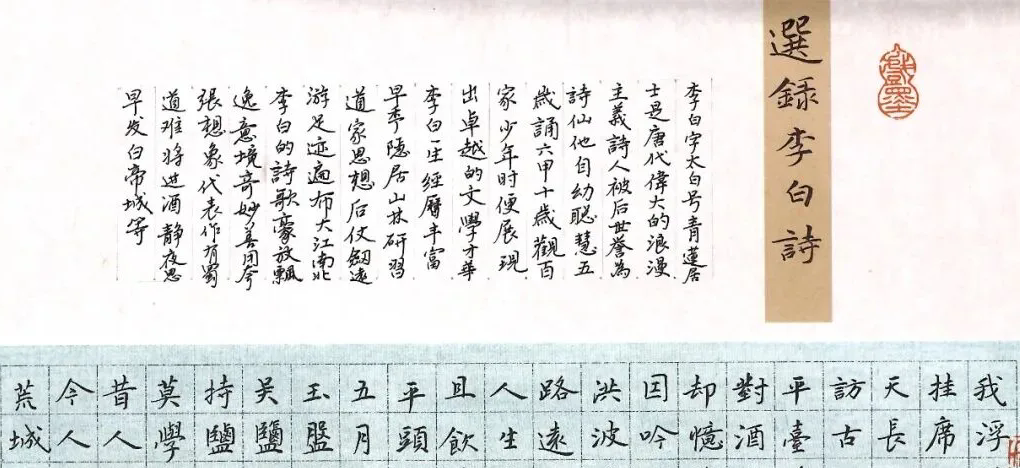 選録李白詩
李白字太白号青蓮居
士是唐代偉大的浪漫
主義詩人被后世誉為
詩仙他自幼聡慧五
歲誦六甲十歲觀百
家少年时便展現
出卓越的文學才華
李白一生經歷丰富
早季隐居山林研習
道家思想后仗劔遠
游足迹遍布大江南北
李白的詩歌豪放飄
逸意境奇妙善用夸
張想象代表作有蜀
道难将进酒静夜思
早发白帝城等
我浮
挂席
天長
訪古
平臺
對酒
却憶
因吟
洪波
路遠
人生
且飲
平頭
五月
玉盤
吴鹽
持鹽
莫學
昔人
今人
荒城